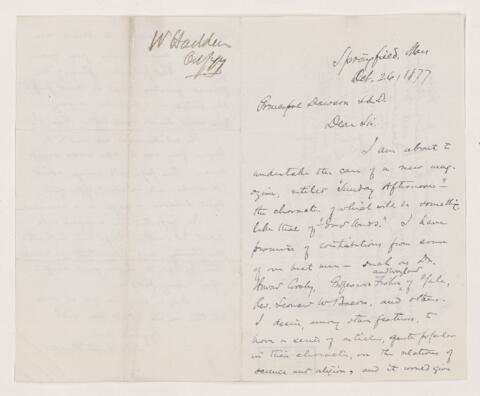 W Hadden
Oct /77
Springfield, Mass
Oct. 26, 1877
Principal Dawson LL.D.
Dear Sir.
I am about to
undertake the care of a new mag-
azine, entitled "Sunday Afternoon" –
the character of which will be something
like that of "Good Words." I have
promise of contributions from some
of our best men – such as Dr.
and
Howard Crosby, Professors Fisher of Yale,
Rev. Leonard W Bacon, and others.
I desire, among other features, to
have a series of articles, quite popular
in their character, on the relations of
science and religion, and it would give